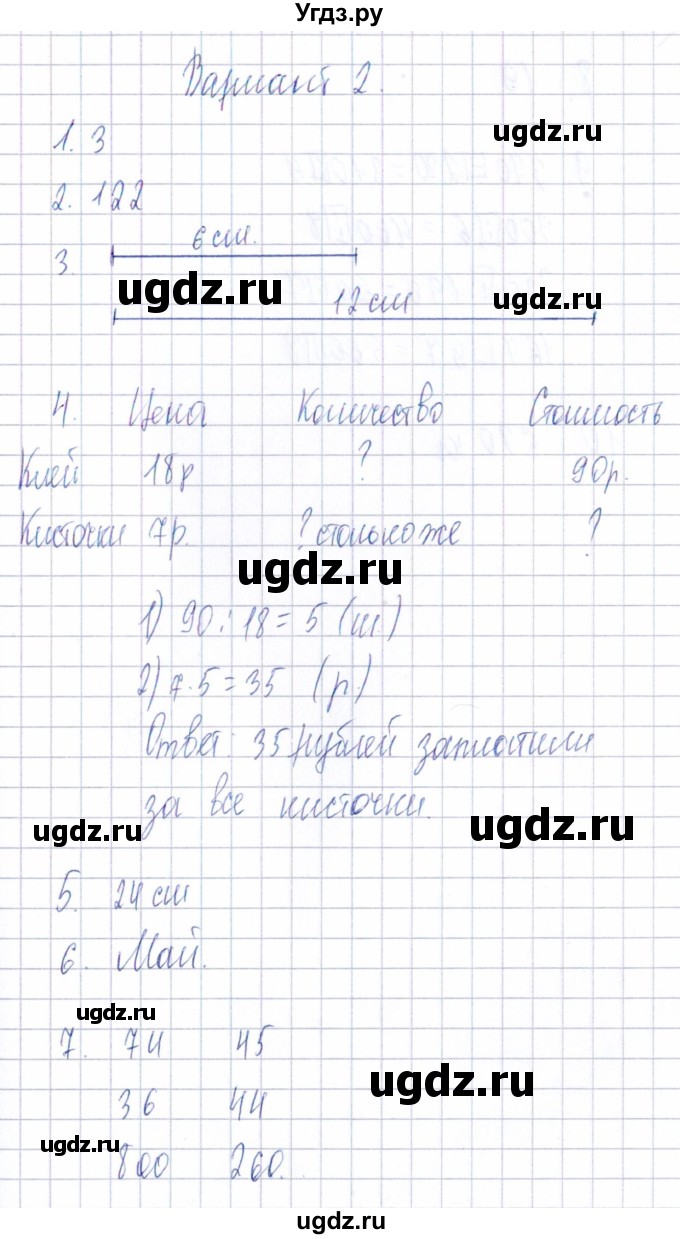 Угдз.ру
Вариант 2.
ugdz.ru
1. 3
2. 122
6 см.
3.
ugdz.ru
12 см
ugdz.ru
4. Цена Количество Стоимость
Клей 18р ? 90р.
Кисточки 7р. ? столько же ?
ugdz.ru
1) 90 : 18 = 5 (ш.)
2) 7 · 5 = 35 (р.)
Ответ: 35 рублей заплатили
за все кисточки.
ugdz.ru
ugdz.ru
5. 24 см
6. Май.
ugdz.ru
7. 74 45
ugdz.ru
36 44
ugdz.ru
800 260.
ugdz.ru